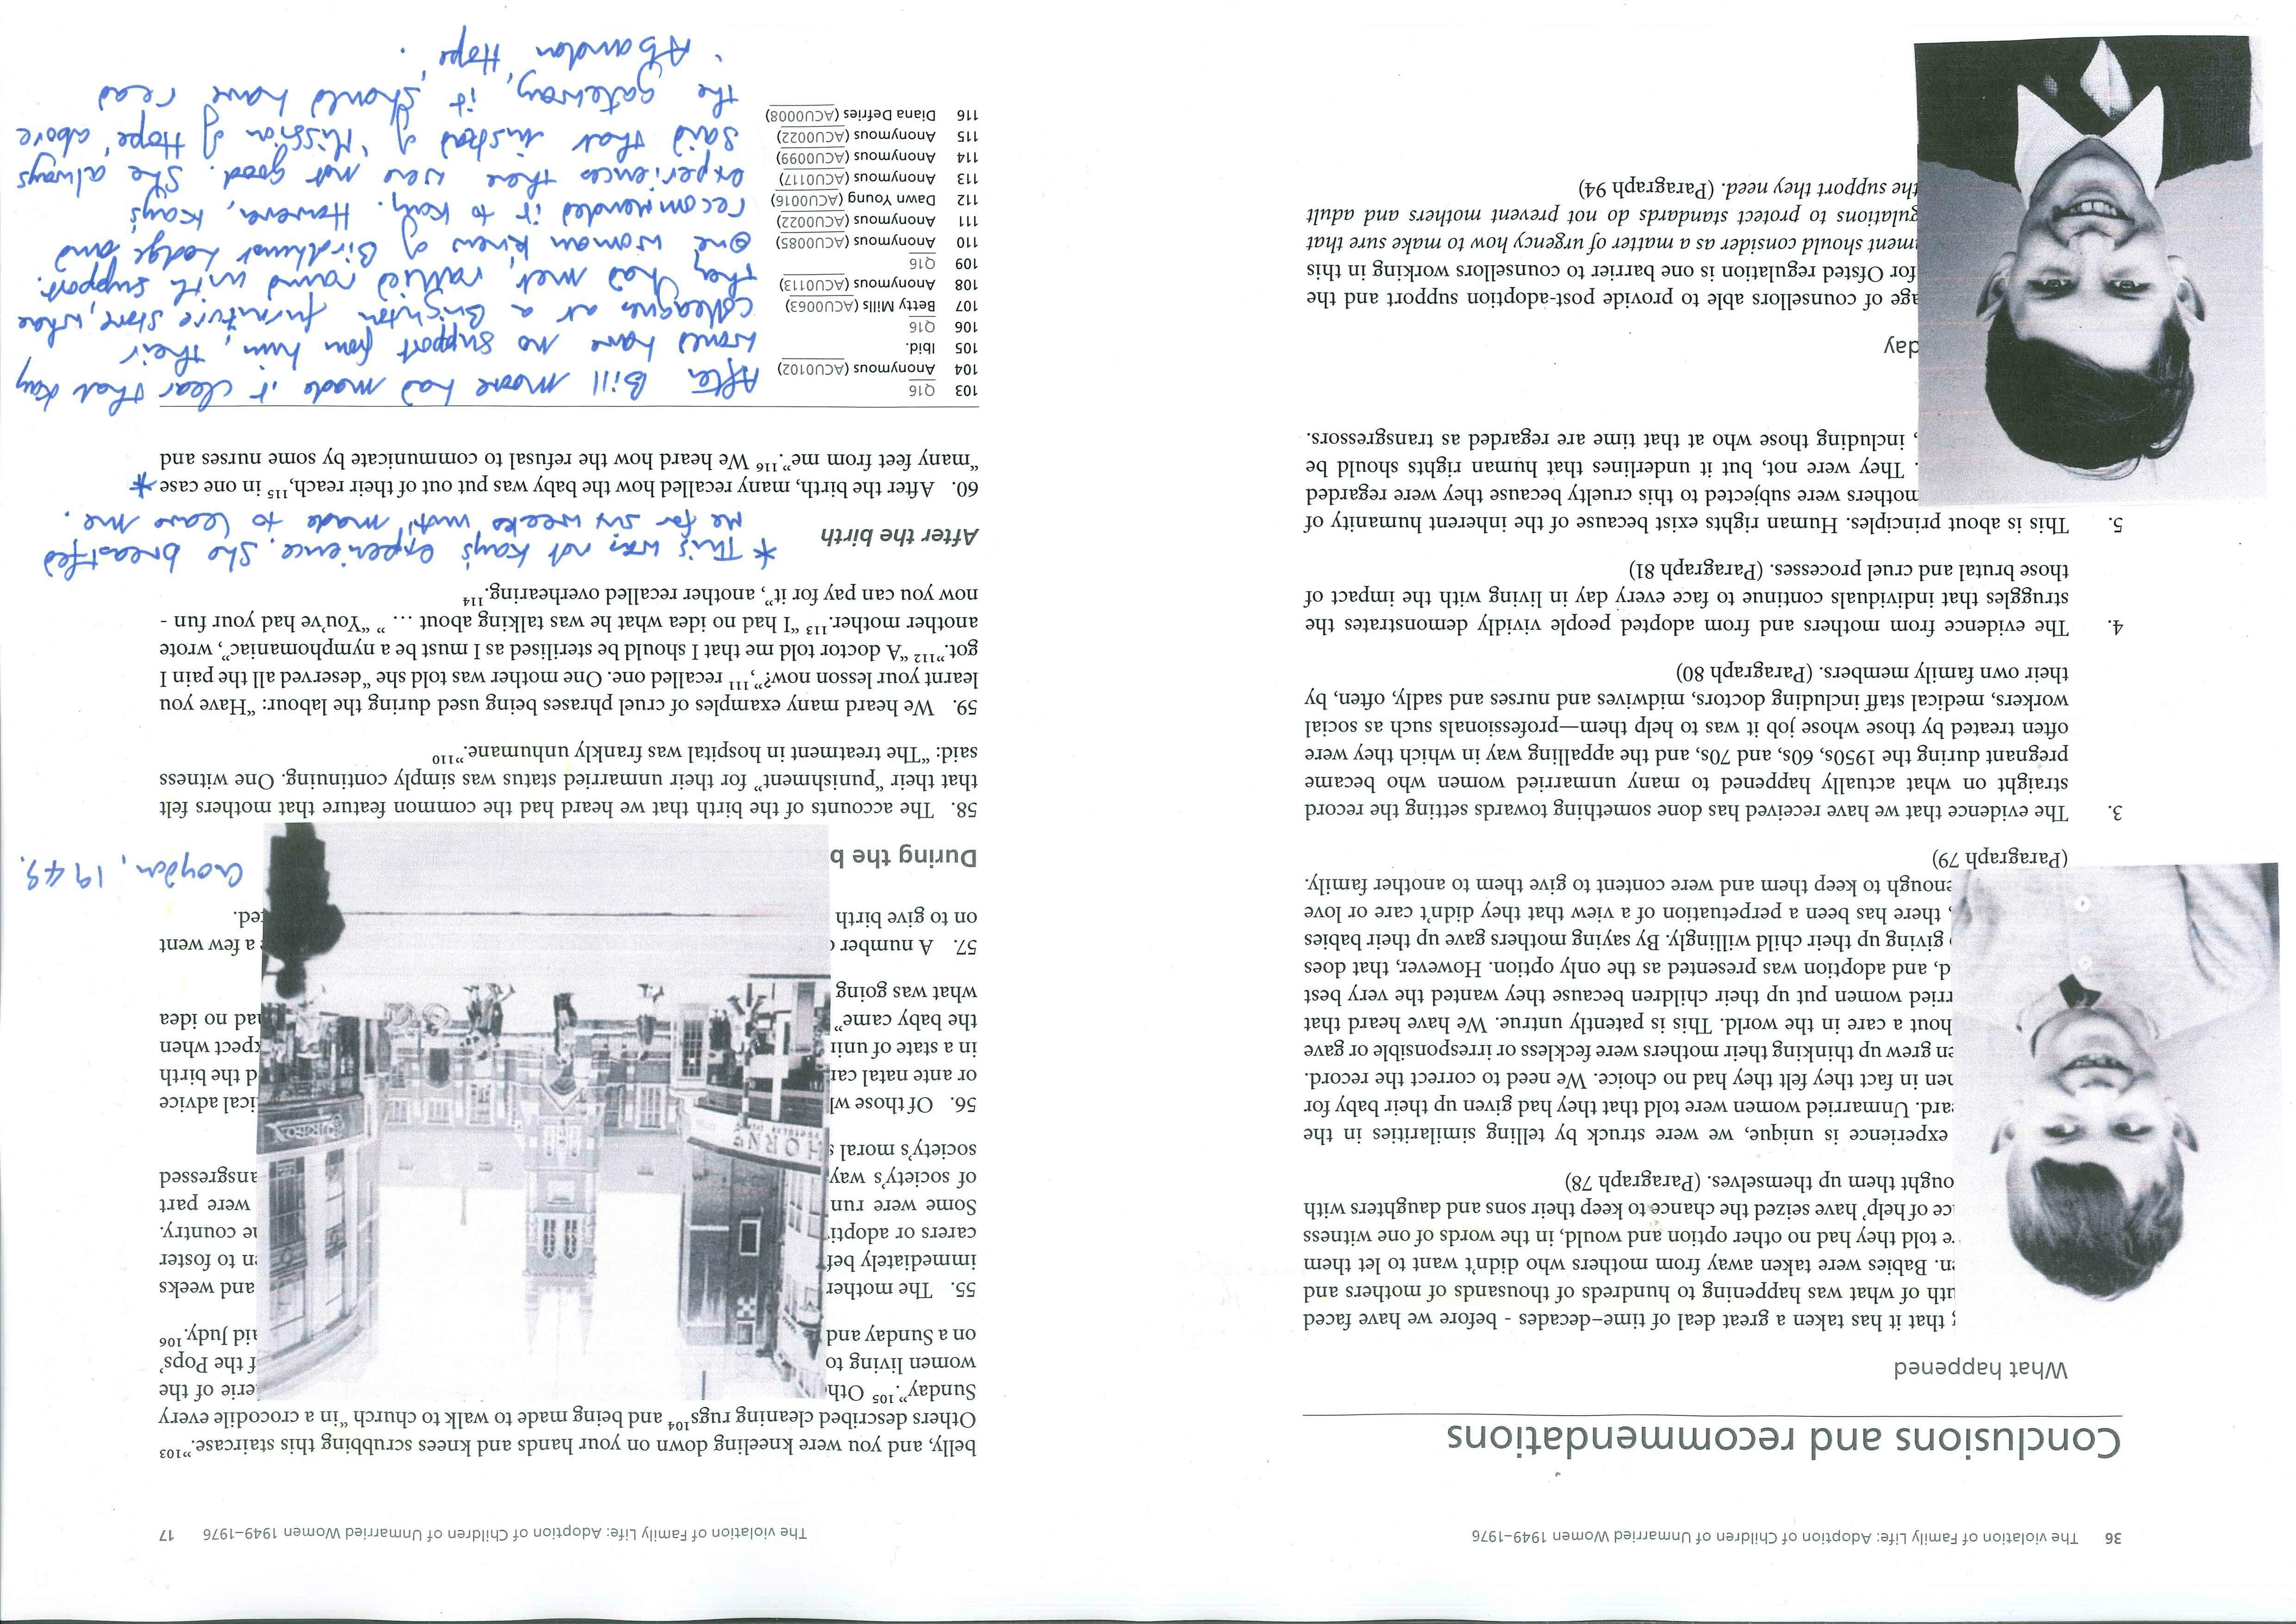 36 The violation of Family Life: Adoption of Children of Unmarried Women 1949–1976
Conclusions and recommendations
What happened
that it has taken a great deal of time–decades - before we have faced
of what was happening to hundreds of thousands of mothers and
Babies were taken away from mothers who didn't want to let them
told they had no other option and would, in the words of one witness
of help' have seized the chance to keep their sons and daughters with
them up themselves. (Paragraph 78)
experience is unique, we were struck by telling similarities in the
Unmarried women were told that they had given up their baby for
in fact they felt they had no choice. We need to correct the record.
grew up thinking their mothers were feckless or irresponsible or gave
a care in the world. This is patently untrue. We have heard that
women put up their children because they wanted the very best
and adoption was presented as the only option. However, that does
giving up their child willingly. By saying mothers gave up their babies
, there has been a perpetuation of a view that they didn't care or love
enough to keep them and were content to give them to another family.
(Paragraph 79)
3. The evidence that we have received has done something towards setting the record
straight on what actually happened to many unmarried women who became
pregnant during the 1950s, 60s, and 70s, and the appalling way in which they were
often treated by those whose job it was to help them—professionals such as social
workers, medical staff including doctors, midwives and nurses and sadly, often, by
their own family members. (Paragraph 80)
4. The evidence from mothers and from adopted people vividly demonstrates the
struggles that individuals continue to face every day in living with the impact of
those brutal and cruel processes. (Paragraph 81)
5. This is about principles. Human rights exist because of the inherent humanity of
mothers were subjected to this cruelty because they were regarded
. They were not, but it underlines that human rights should be
, including those who at that time are regarded as transgressors.
day
age of counsellors able to provide post-adoption support and the
for Ofsted regulation is one barrier to counsellors working in this
ment should consider as a matter of urgency how to make sure that
gulations to protect standards do not prevent mothers and adult
the support they need. (Paragraph 94)
The violation of Family Life: Adoption of Children of Unmarried Women 1949–1976 17
belly, and you were kneeling down on your hands and knees scrubbing this staircase."103
Others described cleaning rugs104 and being made to walk to church "in a crocodile every
Sunday".105 Oth erie of the
women living to f the Pops'
on a Sunday and aid Judy.106
55. The mother and weeks
immediately bef en to foster
carers or adopti he country.
Some were run were part
of society's way ansgressed
society's moral s
56. Of those wh ical advice
or ante natal car d the birth
in a state of unir xpect when
the baby came" had no idea
what was going
57. A number a few went
on to give birth ted.
HORNE
BURTON
Croydon, 1949.
During the b
58. The accounts of the birth that we heard had the common feature that mothers felt
that their "punishment" for their unmarried status was simply continuing. One witness
said: "The treatment in hospital was frankly unhumane."110
59. We heard many examples of cruel phrases being used during the labour: "Have you
learnt your lesson now?",111 recalled one. One mother was told she "deserved all the pain I
got."112 "A doctor told me that I should be sterilised as I must be a nymphomaniac", wrote
another mother.113 "I had no idea what he was talking about … " "You've had your fun -
now you can pay for it", another recalled overhearing.114
* This was not Kay's experience. She breastfed
me for six weeks until made to leave me.
After the birth
60. After the birth, many recalled how the baby was put out of their reach,115 in one case *
"many feet from me".116 We heard how the refusal to communicate by some nurses and
103 Q16
104 Anonymous (ACU0102)
105 Ibid.
106 Q16
107 Betty Mills (ACU0063)
108 Anonymous (ACU0113)
109 Q16
110 Anonymous (ACU0085)
111 Anonymous (ACU0022)
112 Dawn Young (ACU0016)
113 Anonymous (ACU0117)
114 Anonymous (ACU0099)
115 Anonymous (ACU0022)
116 Diana Defries (ACU0008)
After Bill Moore had made it clear that Kay
would have no support from him, their
colleagues at a Brighton furniture store, where
they had met, rallied round with support.
One woman knew of Birdhurst Lodge and
recommended it to Kay. However, Kay's
experiences there were not good. She always
said that instead of 'Mission of Hope' above
the gateway, it should have read
'Abandon Hope'.